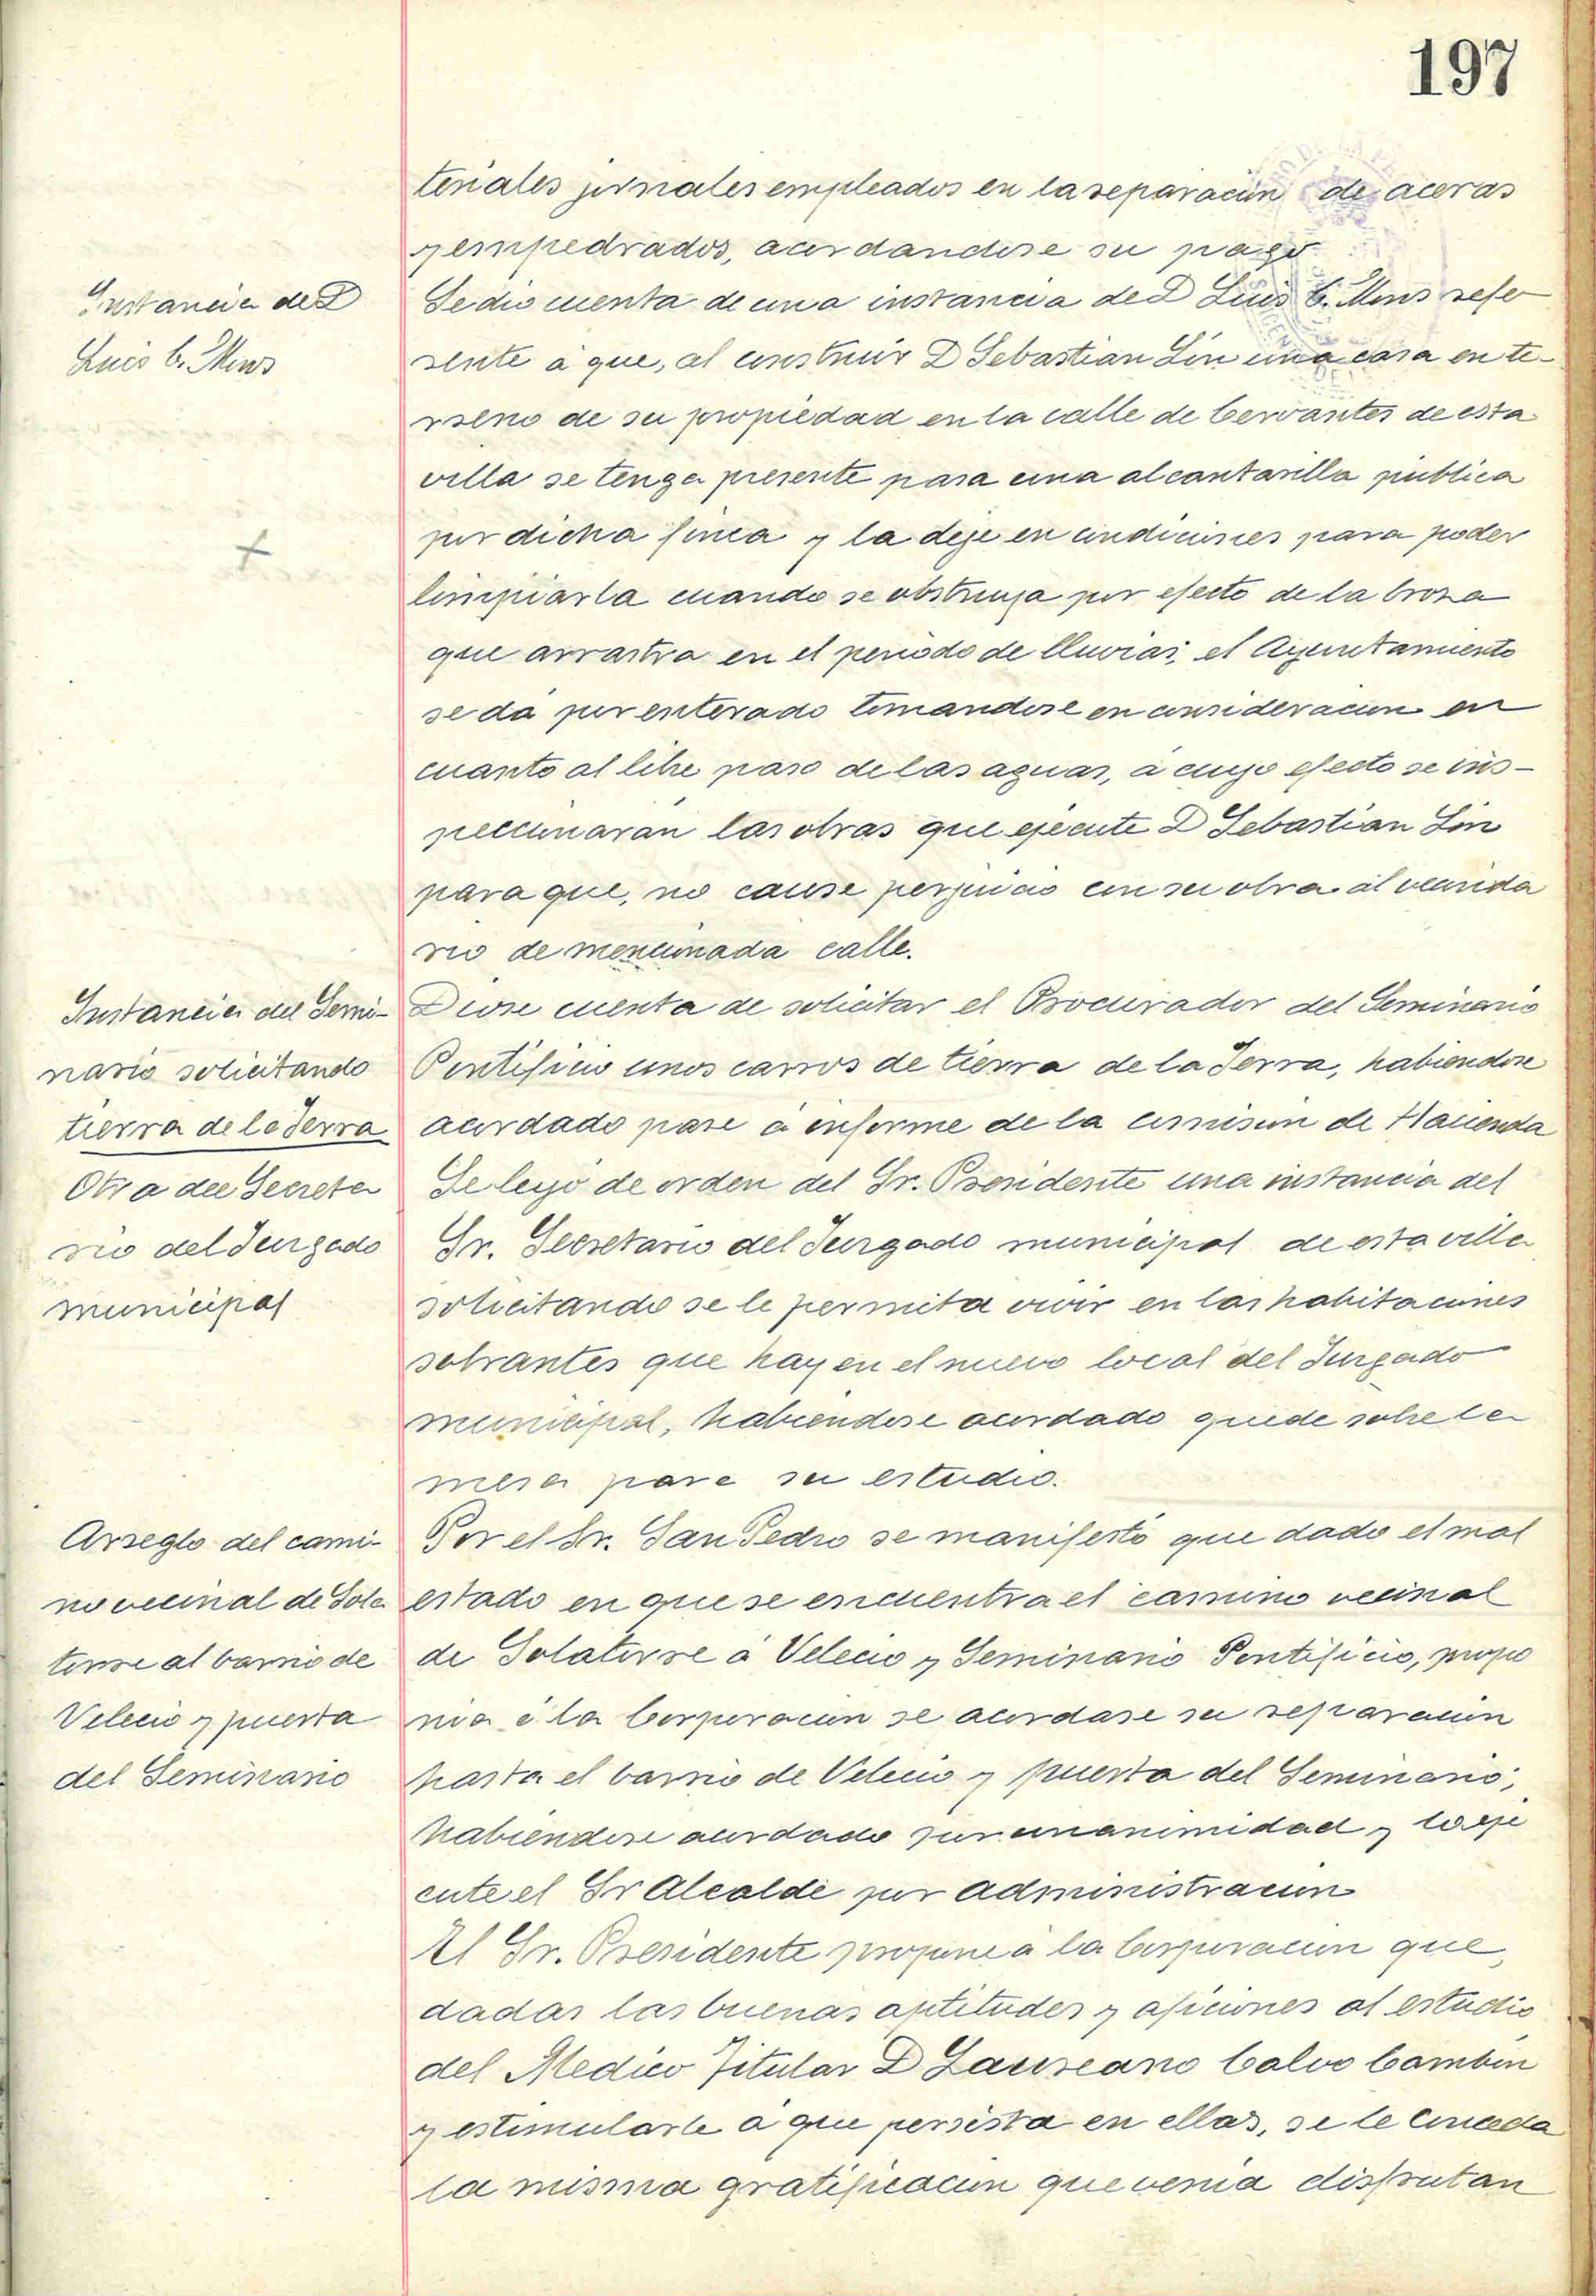 197
teriales jornales empleados en la reparación de aceras
y empedrados, acordandose su pago
Instancia de D
Luis C. Mons
Se dio cuenta de una instancia de D Luis C. Mons refe
rente á que, al construir D Sebastian Lin una casa en te-
rreno de su propiedad en la calle de Cervantes de esta
villa se tenga presente pasa una alcantarilla publica
por dicha finca y la deje en condiciones para poder
limpiarla cuando se obstruya por efecto de la broza
que arrastra en el periodo de lluvias, el Ayuntamiento
se dá por enterado tomandose en consideracion en
cuanto al libre paso de las aguas, á cuyo efecto se ins-
peccionarán las obras que ejecute D Sebastian Lin
para que, no cause perjuicio con su obra al vecinda
rio de mencionada calle.
Instancia del Semi-
nario solicitando
tierra de la Serra
Diose cuenta de solicitar el Procurador del Seminario
Pontificio unos carros de tierra de la Serra, habiendose
acordado pase á informe de la comision de Hacienda
Otra del Secreta
rio del Juzgado
municipal
Se leyó de orden del Sr. Presidente una instancia del
Sr. Secretario del Juzgado municipal de esta villa
solicitando se le permita vivir en las habitaciones
sobrantes que hay en el nuevo local del Juzgado
municipal, habiendose acordado quede sobre la
mesa para su estudio.
Arreglo del cami-
no vecinal de Sola
torre al barrio de
Velecio y puerta
del Seminario
Por el Sr. San Pedro se manifestó que dado el mal
estado en que se encuentra el camino vecinal
de Solatorre á Velecio y Seminario Pontificio, propo
nia á la Corporacion se acordase su reparacion
hasta el barrio de Velecio y puerta del Seminario,
habiendose acordado por unanimidad y lo eje
cute el Sr Alcalde por administracion
El Sr. Presidente propone á la Corporacion que,
dadas las buenas aptitudes y aficiones al estudio
del Medico Titular D Laureano Calvo Cambon
y estimularle á que persista en ellas, se le conceda
la misma gratificacion que venia disfrutan